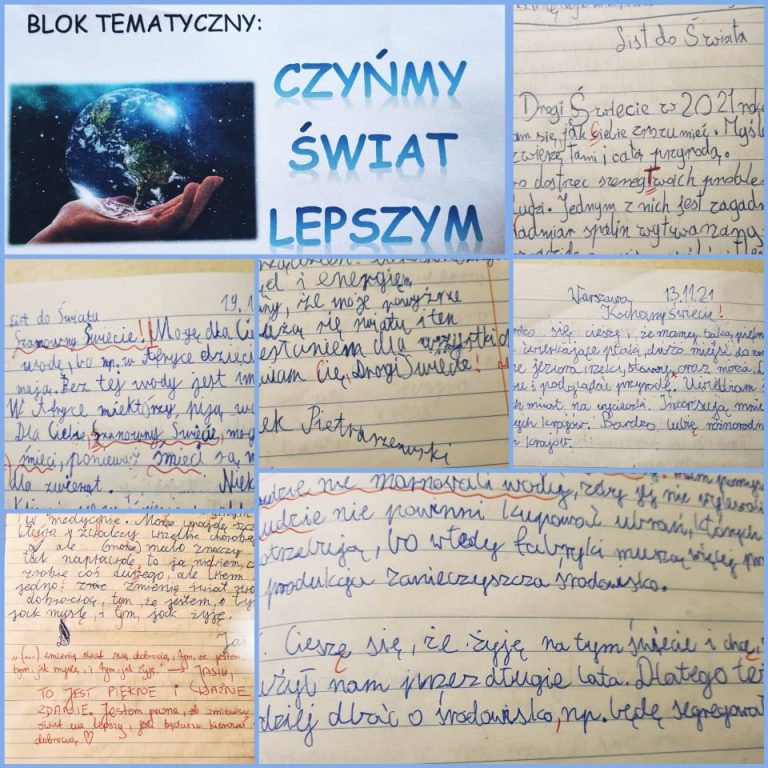 BLOK TEMATYCZNY:
CZYŃMY
ŚWIAT
LEPSZYM
List do Świata
Drogi Świecie w 2021 roku
am się, jak Ciebie zrozumieć. Myślę
zwierzętami i całą przyrodą.
o dostrzec szereg Twoich proble
ługa. Jednym z nich jest zagadn
ladmiar spalin wytwarzany
19.1
List do Świata
Szanowny Świecie! Mogę dla Cie
wodę, bo np. w Afryce dzieci
mają. Bez tej wody jest im
W Afryce niektórzy piją wo
Dla Ciebie, Szanowny Świecie, mog
śmieci, ponieważ śmieci są n
dla zwierząt. Niek
ęd i energię.
ny, że moje powyższe
żą się światu i ten
estaniem dla wszystkich
wiam Cię, Drogi Świecie!
ek Pietraszewski
Warszawa 13.11.21
Kochany Świecie!
się cieszę, że mamy taką piękn
ćwierkające ptaki, dużo miejsc do zw
że jeziora, rzeki, stawy, oraz morza.
u i podglądać przyrodę. Uwielbiam
ch miast na wycieczki. Interesują mnie
ych krajów. Bardzo lubię różnorodn
krajów.
w medycynie. Może
i zwalczy wszelkie choroby
ale (może) mało znaczy
tak naprawdę, to ja
zrobię coś dużego, ale wiem
jedno: zmienię świat swo
dobrocią, tym, że jestem, tym
jak myślę, i tym, jak żyję.
Jaś
„(...) zmienię świat swą dobrocią, tym, że jestem,
tym, jak myślę, i tym, jak żyję." → JASIU,
TO JEST PIĘKNE i WAŻNE
ZDANIE. Jestem pewna, że zmienisz
świat na lepszy, jeśli będziesz kierował
dobrocią ♡
udzie nie marnowali wody, żeby jej nie wylewali
udzie nie powinni kupować ubrań, których
otrzebują, bo wtedy fabryki muszą więcej pro
produkcja zanieczyszcza środowisko.
. Cieszę się, że żyję na tym świecie i chcę,
użył nam przez długie lata. Dlatego też
dziej dbać o środowisko, np. będę segregował